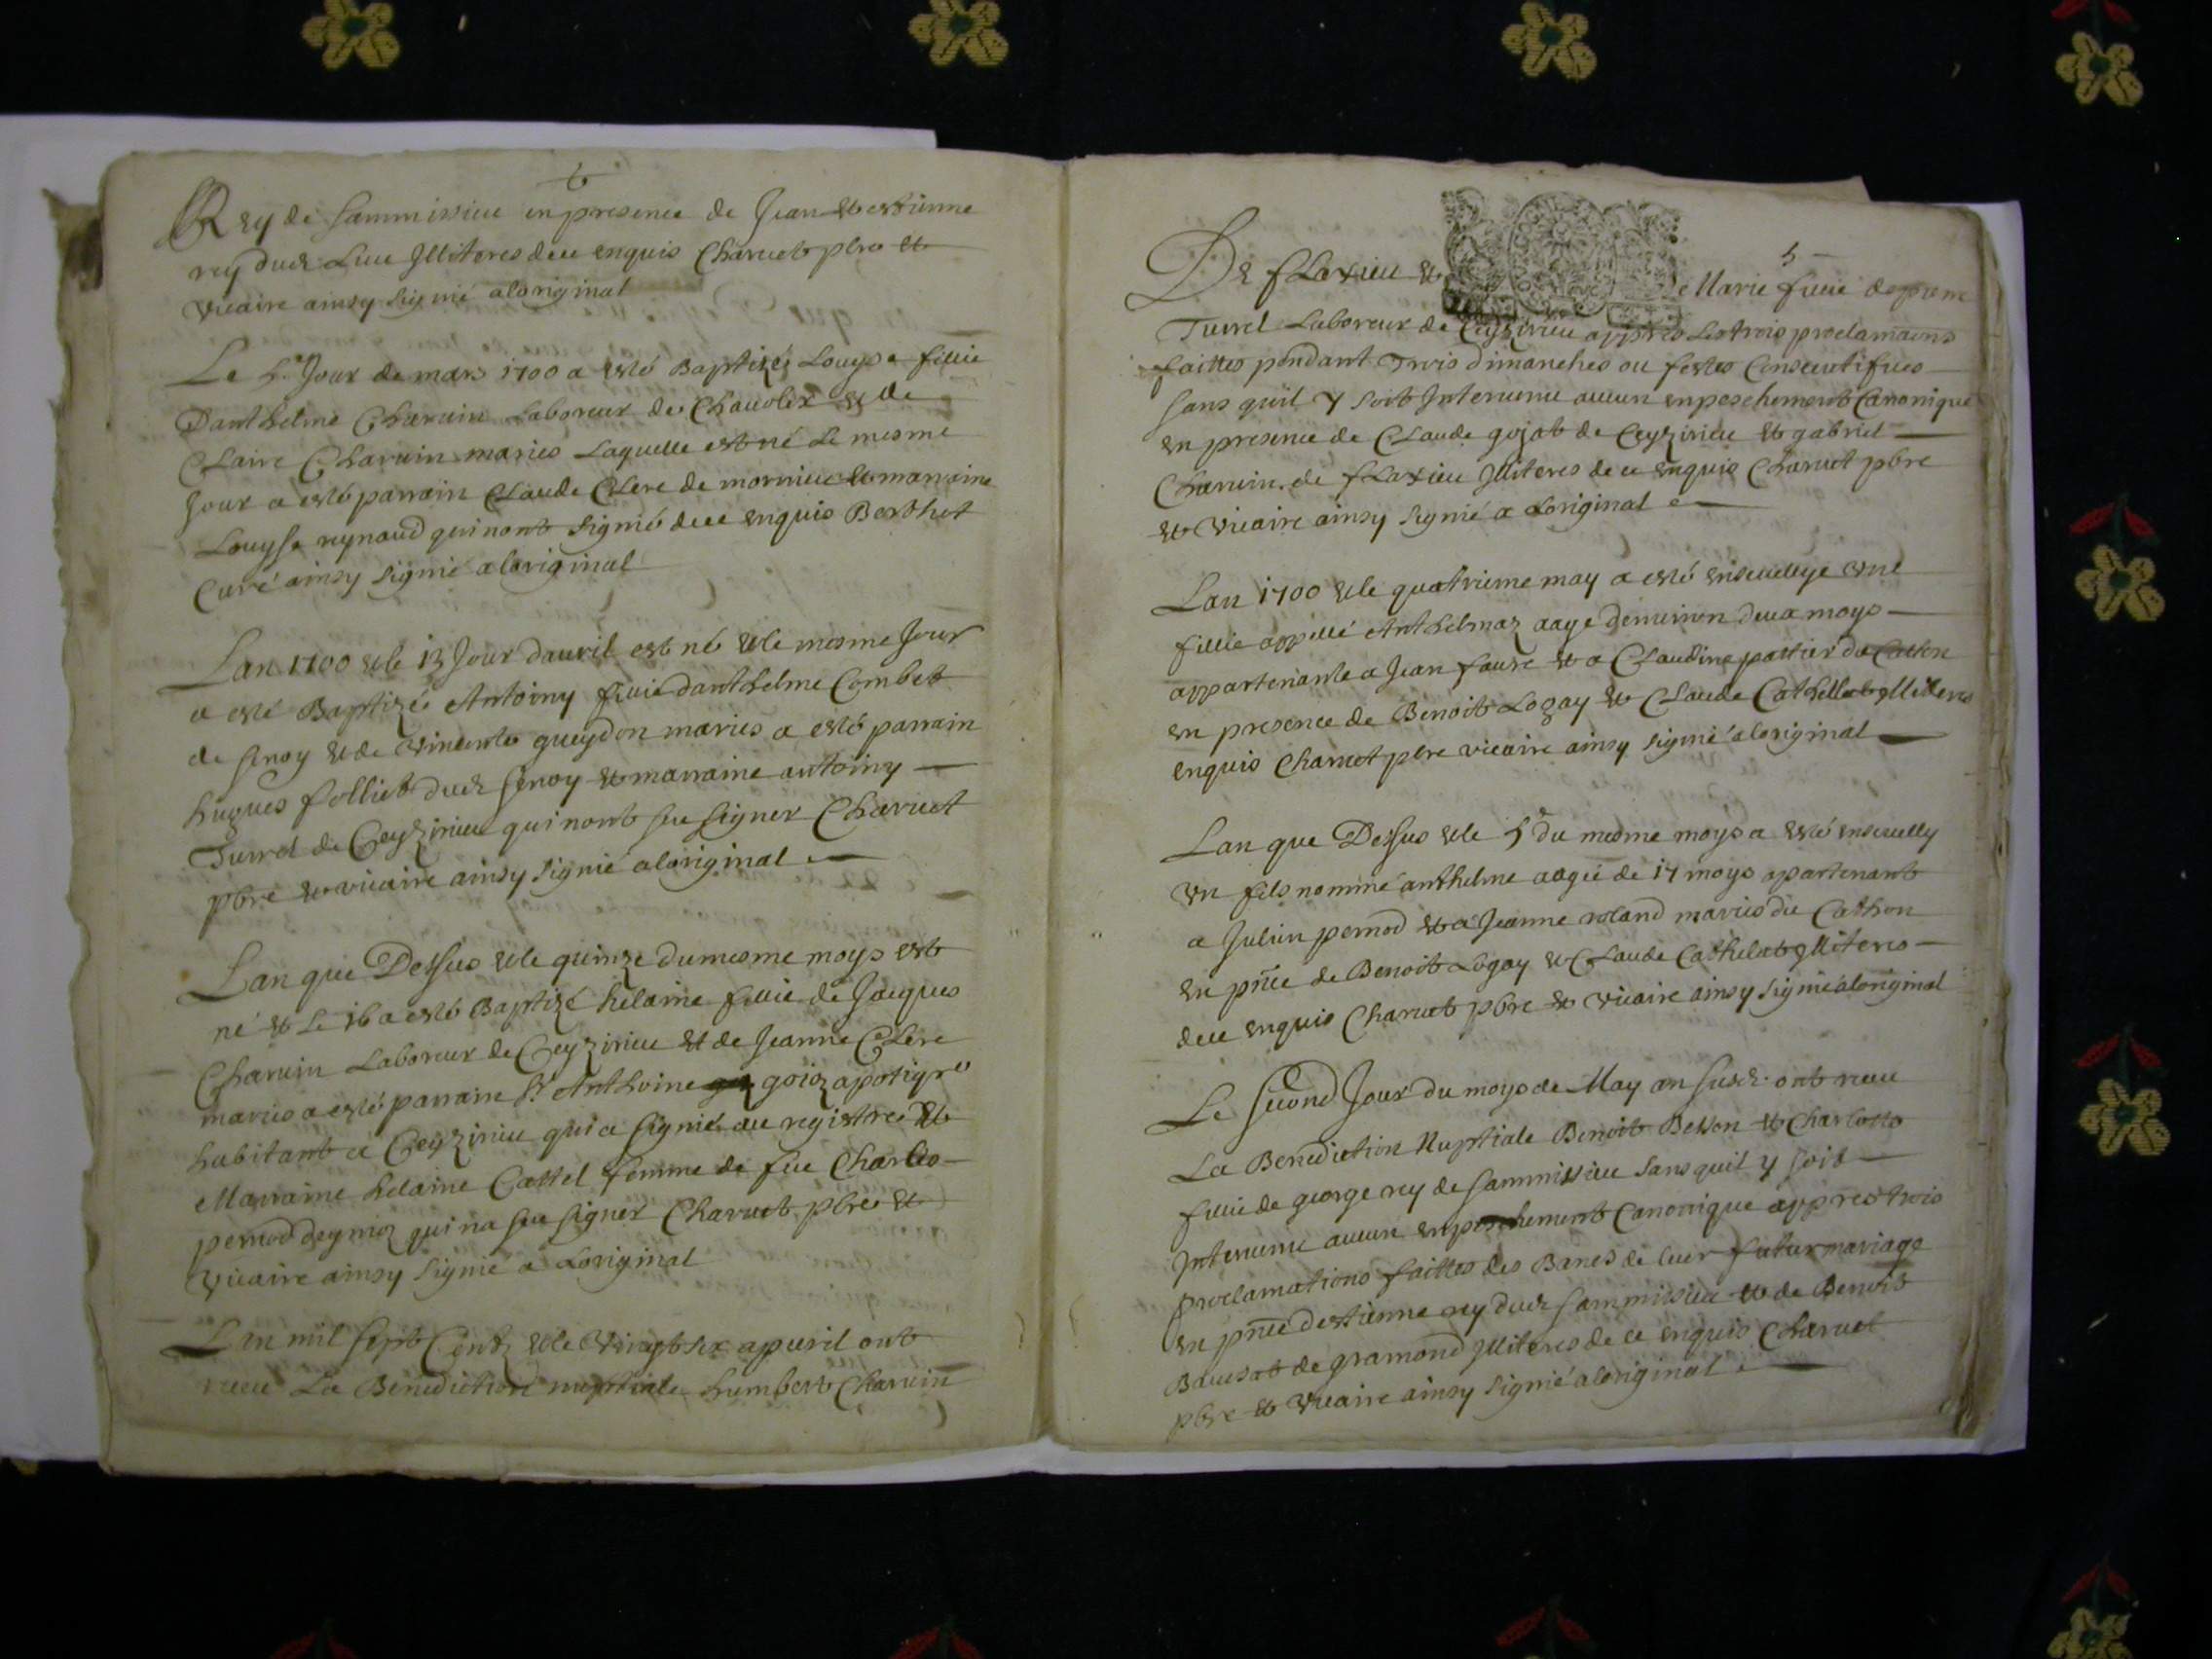 Rey de Sammisieu en presence de Jean et estienne
rey dud. Lieu Illiteres de ce enquis Charuet pbre et
vicaire ainsy signié aloriginal
Le 5e Jour de mars 1700 a esté Baptizée Louyse fillie
Danthelme Charuin Laboreur de Chauolex et de
Claire Charuin maries Laquelle est né Le mesme
Jour a esté parrain Claude Clerc de mornieu et marraine
Louyse reynaud qui nont signié de ce enquis Berthet
Curé ainsy signié aloriginal
Lan 1700 et le 13 Jour dauril est né et le mesme Jour
a esté Baptizée Antoiny fillie danthelme Combet
de senoy et de vincente gueydon maries a esté parrain
hugues folliet dud. senoy et marraine antoiny
Turrel de Ceyzirieu qui nont seu signer Charuet
pbre et vicaire ainsy signié aloriginal
Lan que Dessus et le quinze du mesme moys est
né et Le 16 a esté Baptizé helaine fillie de Jacques
Charuin Laboreur de Ceyzirieu et de Jeanne Clerc
maries a esté parrain Sr Anthoine goioz apotiqre
habitant a Ceyzirieu qui a signié au registre et
Marraine helaine Cattel femme de feu Charles
pernod deymoz qui na seu signer Charuet pbre et
vicaire ainsy signié a Loriginal
Lan mil sept Centz et le vingt six apuril ont
receu La Benediction nuptiale humbert Charuin
5
De flaxieu et Marie fillie de
Turrel Laboreur de Ceyzirieu appres Les trois proclamaons
faittes pendant Trois dimanches ou festes Consecutifues
sans quil y soit Interuenu aucun enpeschement Canonique
en presence de Claude gojat de Ceyzirieu et gabriel
Charuin de flaxieu Illiteres de ce enquis Charuet pbre
et vicaire ainsy signié a Loriginal
Lan 1700 et le quatrieme may a esté enseuellye une
fillie appellé Anthelmaz aage denuiron deux moys
appartenante a Jean faure et a Claudine pattier du Catton
en presence de Benoit Logay et Claude Cathellat Illiteres
enquis Charuet pbre vicaire ainsy signié aloriginal
Lan que Dessus et le 5e du mesme moys a esté enseuelly
un fils nommé anthelme aagié de 14 moys apartenant
a Julien pernod et a Jeanne roland maries du Cathon
en pnce de Benoit Logay et Claude Cathelat Illiteres
de ce enquis Charuet pbre et vicaire ainsy signié aloriginal
Le second Jour du moys de May an susd. ont receu
La Benediction Nuptiale Benoit Besson et Charlotte
fillie de george rey de sammissieu sans quil y soit
Interuenu aucun enpeschement Canonique appres trois
proclamations faittes des Banes de leur futur mariage
en pnce destienne rey dud. sammisieu et de Benoit
Baucsat de gramond Illiteres de ce enquis Charuet
pbre et vicaire ainsy signié aloriginal